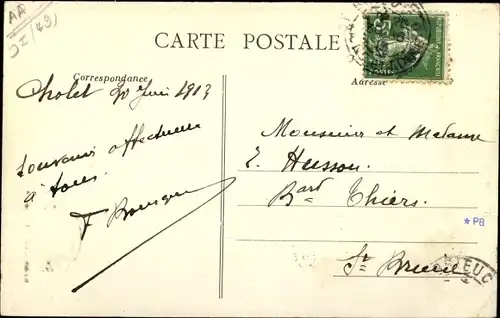 AA
(49)
CARTE POSTALE
Correspondance
Adresse
Cholet 30 Juin 1913
Souvenir affectueux
à tous
Monsieur et Madame
E. Husson
Bard Thiers
St Brieuc
*PB